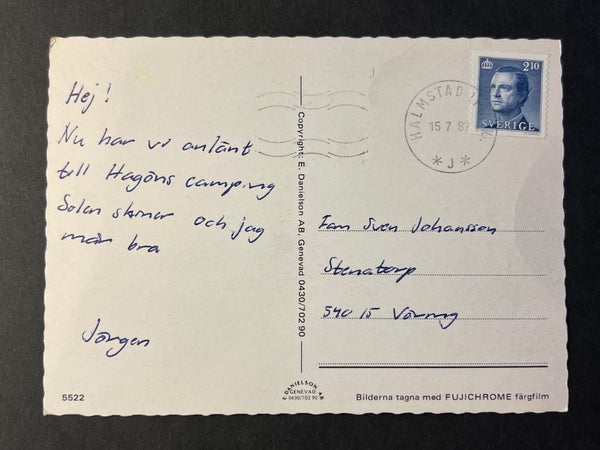 Hej!
Nu har vi anlänt
till Hagöns camping
Solen skiner och jag
mår bra
Jörgen
5522
Copyright: E. Danielson AB, Genevad 0430/702 90
E DANIELSON AB
GENEVAD
0430/702 90
2.10
SVERIGE
HALMSTAD
15 7 87
* J *
Fam Sven Johansson
Stenatorp
540 15 Väring
Bilderna tagna med FUJICHROME färgfilm